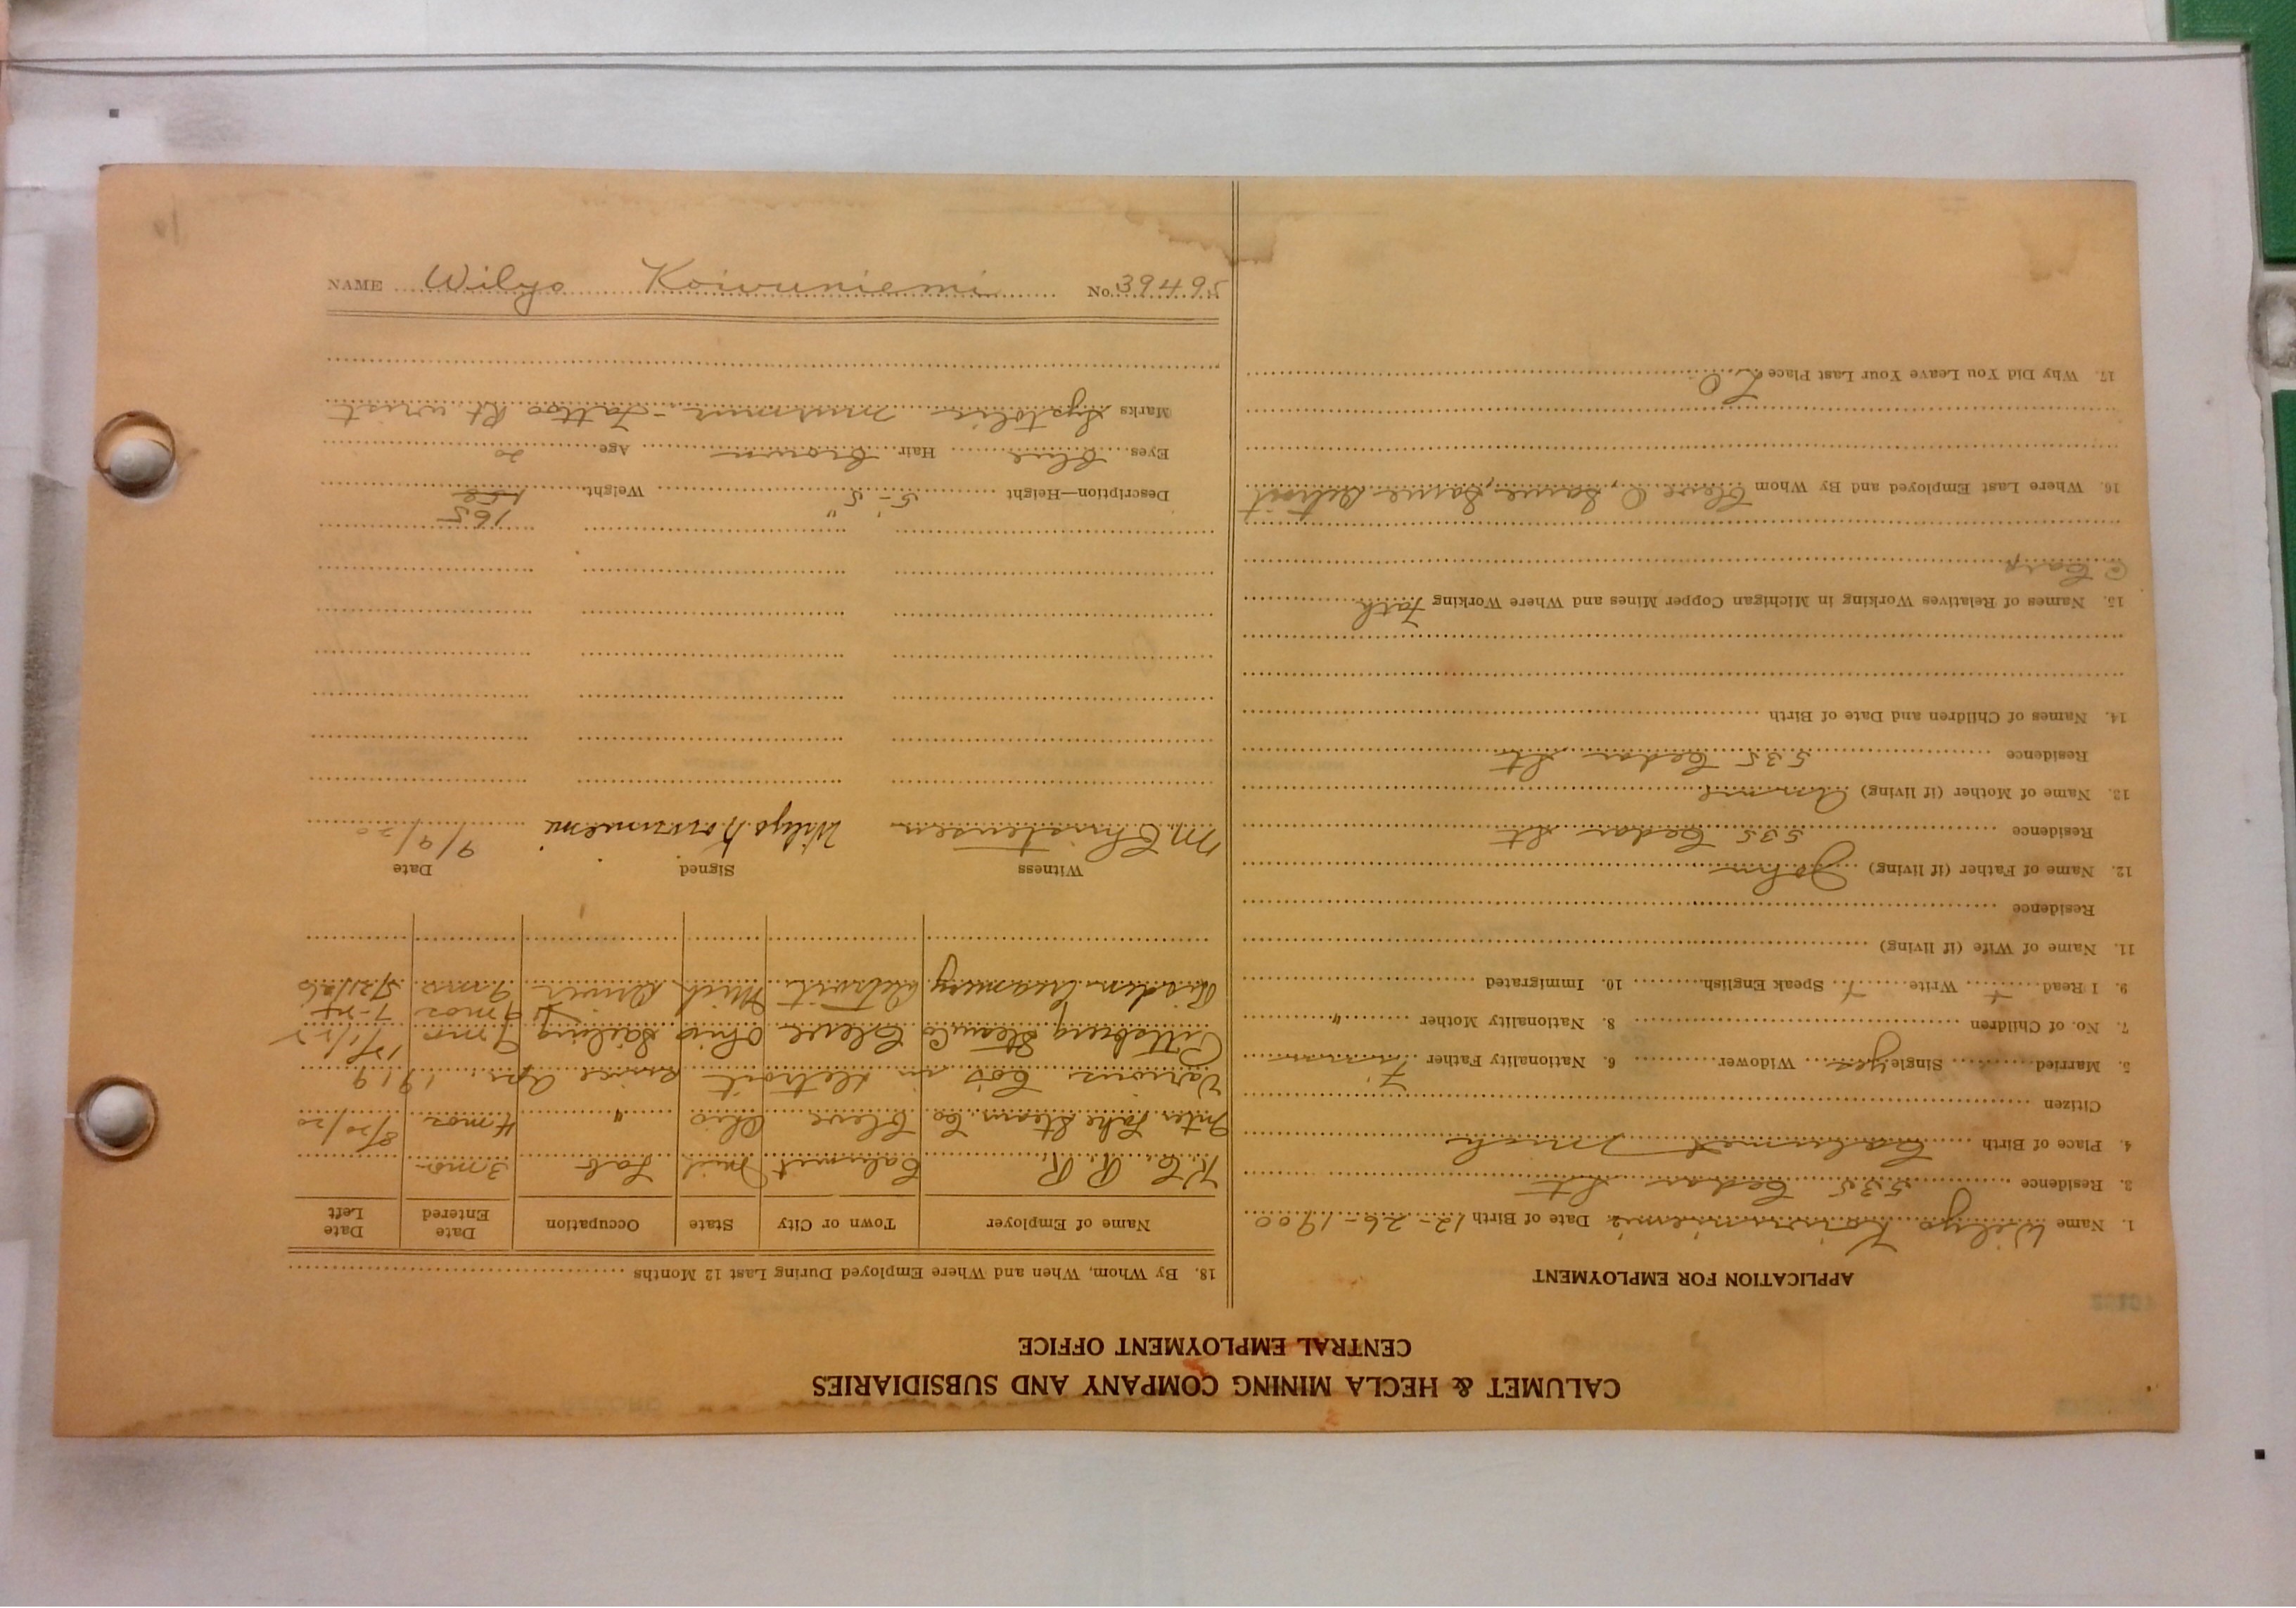 CALUMET & HECLA MINING COMPANY AND SUBSIDIARIES
CENTRAL EMPLOYMENT OFFICE
APPLICATION FOR EMPLOYMENT
1. Name Wilyo Koivuniemi Date of Birth 12-26-1900
2. Residence 535 Cedar St
4. Place of Birth Calumet Mich
Citizen
5. Married Single yes Widower 6. Nationality Father Finn
7. No. of Children 8. Nationality Mother "
9. I Read + Write + Speak English 10. Immigrated
11. Name of Wife (if living)
Residence
12. Name of Father (if living) John
Residence 535 Cedar St
13. Name of Mother (if living)
Residence 535 Cedar St
14. Names of Children and Date of Birth
15. Names of Relatives Working in Michigan Copper Mines and Where Working Fath
16. Where Last Employed and By Whom Cleve O, Same, Same Detroit
17. Why Did You Leave Your Last Place
18. By Whom, When and Where Employed During Last 12 Months
Name of Employer Town or City State Occupation Date Entered Date Left
K.C. R.R. Calumet Mich Lab 3 mos
Inter Lake Steam. Co Cleve Ohio " 4 mos 8/20/20
Various Co's in Detroit since Apr. 1919
Pittsburg Steam Co Cleve Ohio Sailing 9 mos
Creamery Detroit Mich Driver 9 mos
Witness Signed Date
M Christensen Wilyo Koivuniemi 9/9/20
165
Description—Height 5'-5" Weight 158
Eyes Blue Hair Brown Age 20
Marks Systolic murmur - Tattoo Rt wrist
NAME Wilyo Koivuniemi No. 39495